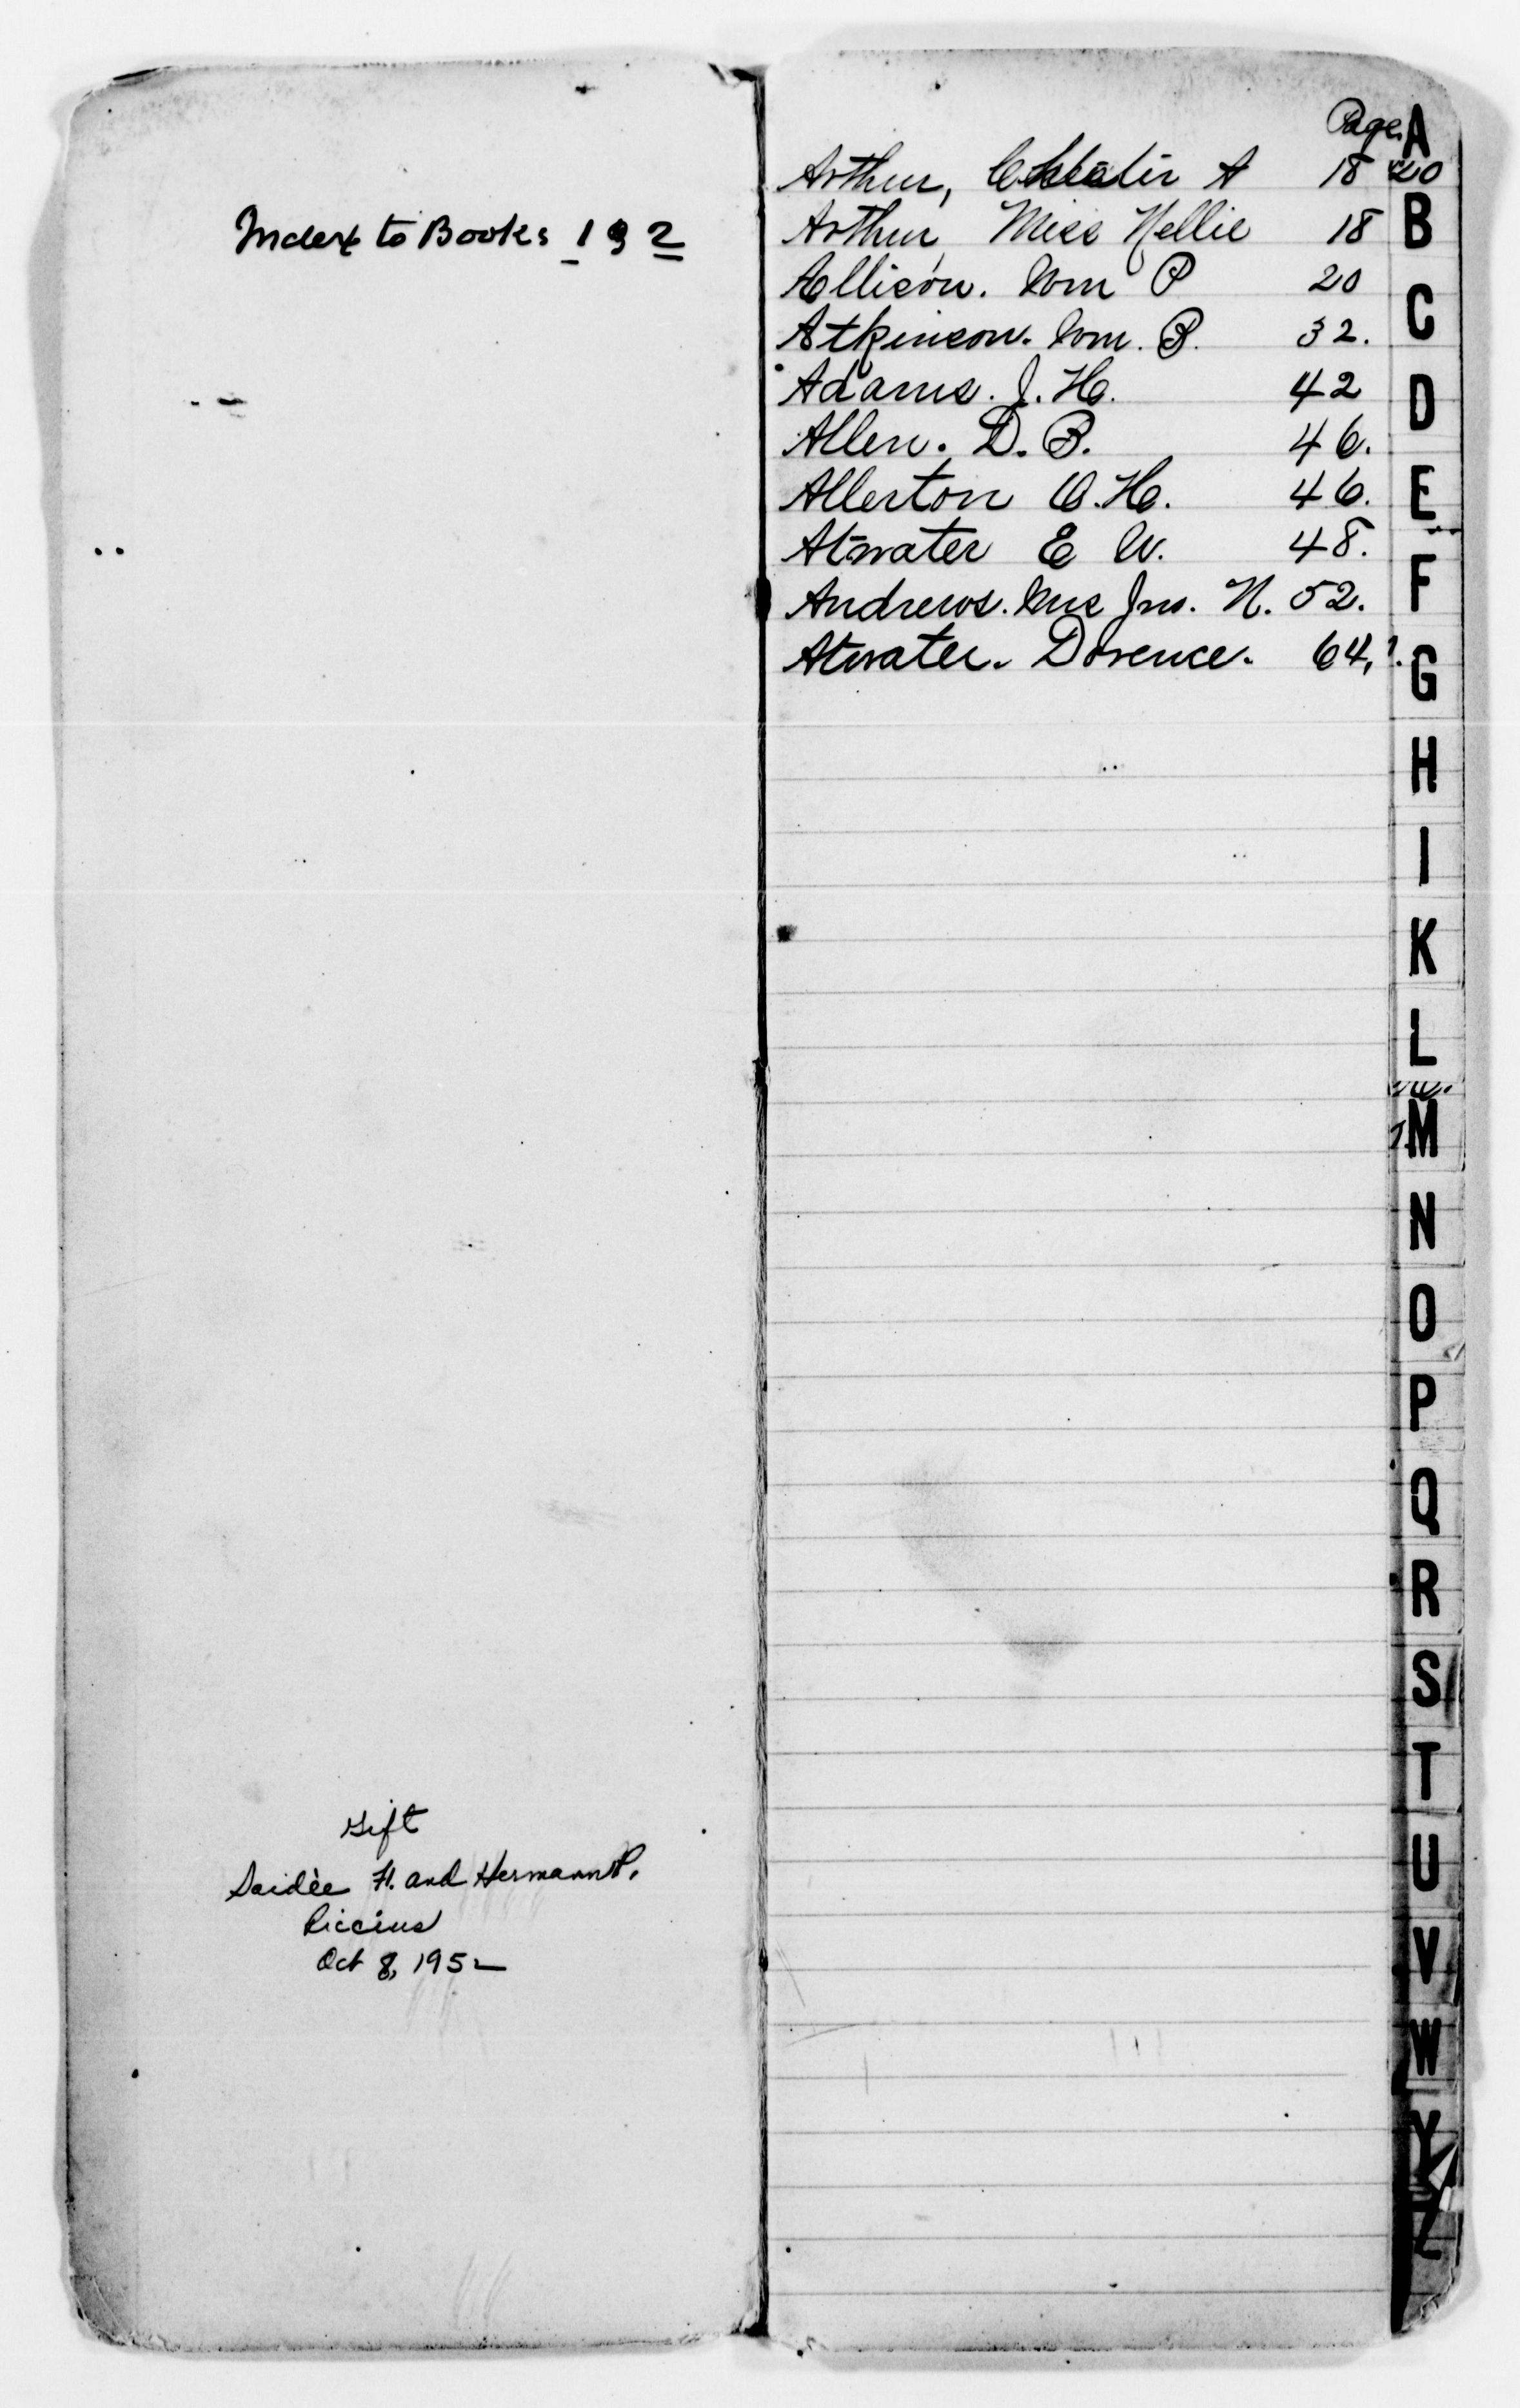 Index to Books 1 & 2
Gift
Saidee F. and Hermann P.
Riccius
Oct 8, 1952
Page.
Arthur, Chester A 18 20
Arthur, Miss Nellie 18
Allison. Wm P 20
Atkinson. Wm. B. 32.
Adams. J. H. 42
Allen. D. B. 46.
Allerton O. H. 46.
Atwater E W. 48.
Andrews. Mrs Jno. N. 52.
Atwater. Dorence. 64,
A
B
C
D
E
F
G
H
I
K
L
M
N
O
P
Q
R
S
T
U
V
W
Y
Z